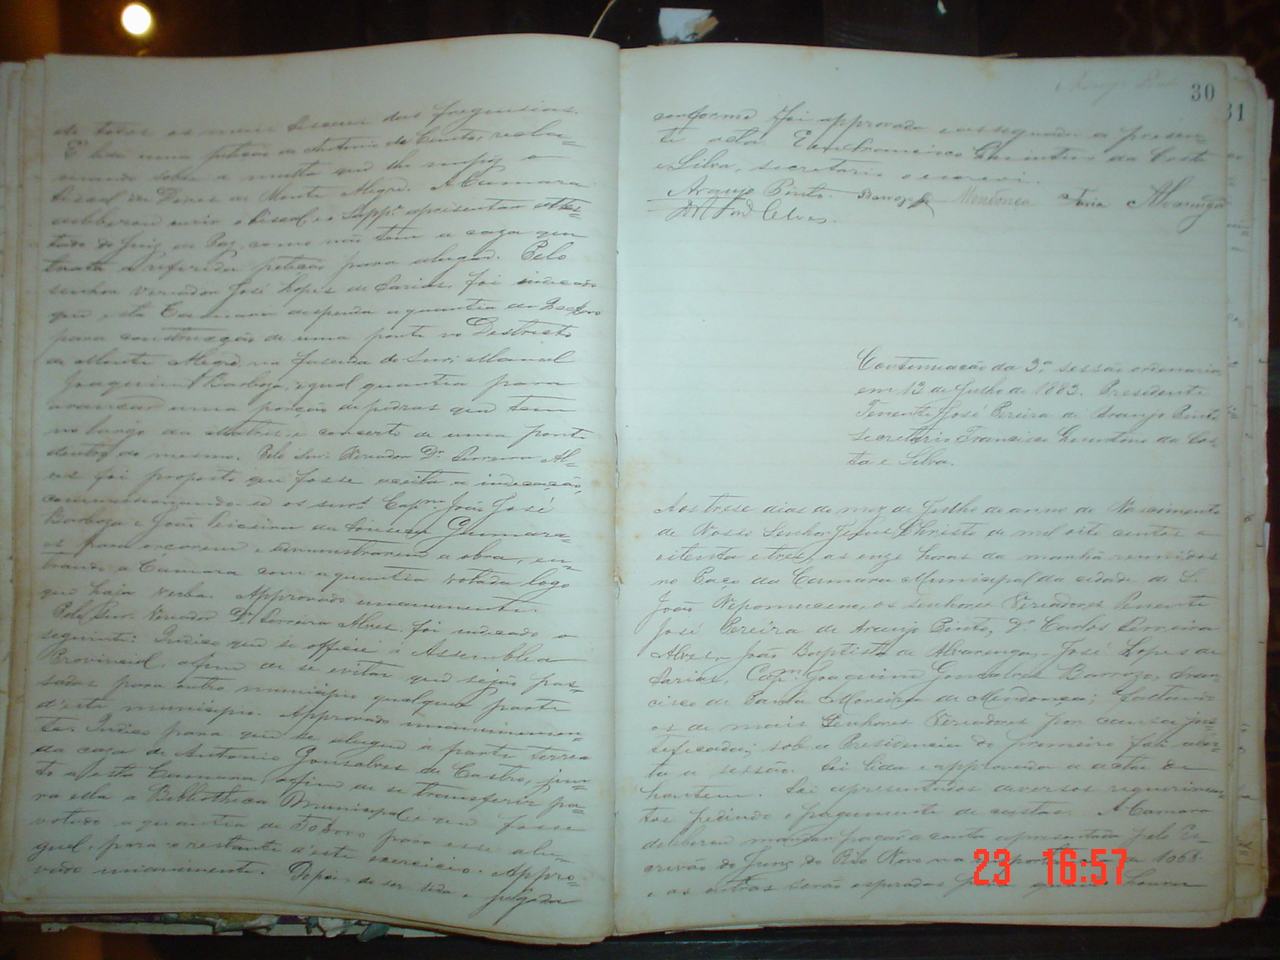 de todos os mais fiscaes das freguesias.
E' lida uma petição de Antonio de Castro, recla-
mando sobre a multa que lhe impoz o
fiscal de Dores do Monte Alegre. A Camara
deliberou ouvir o fiscal, e o Supp.e apresentar attes-
tado do Juiz de Paz, como não tem a caza que
trata a referida petição para alugar. Pelo
senhor vereador José Lopes de Farias, foi indicado
que esta Camara despenda a quantia de
para construcção de uma ponte no Destricto
de Monte Alegre, na fasenda do Snr. Manoel
Joaquim Barboza, igual quantia para
arrancar uma porção de pedras que tem
no largo da Matriz, e concerto de uma ponte
dentro do mesmo. Pelo Snr. Vereador Dr. Ferreira Al-
ves foi proposto que fosse aceita a indicação,
commissionando-se os snrs. Capm. João José
Barboza e João Teixeira da Fonseca Guimarã-
es para orçarem e administrarem a obra, en-
trando a Camara com a quantia votada logo
que haja verba. Approvado unanimente.
Pelo Snr. Vereador Dr. Ferreira Alves, foi indicado o
seguinte: Indico que se officie á Assemblea
Provincial, afim de se evitar que sejão pas-
sadas para outro municipio qualquer parte
d'este municipio. Approvado unanimemen-
te. Indico para que se alugue a parte terrea
da caza de Antonio Gonsalves de Castro, jun-
to a esta Camara, afim de se transferir pa-
ra ella a Bibliotheca Municipal e que fosse
votado a quantia de para esse alu-
guel, para o restante d'este exercicio. Appro-
vado unanimente. Depois de ser lida e julgada
30
31
conforme foi approvada e assignada a presen-
te acta. Eu Francisco Quintino da Costa
e Silva, secretario o escrevi.
Araujo Pinto. Barrozo Mendonça Faria Alvarenga
Alves.
Continuação da 3.a sessão ordenaria
em 13 de Julho de 1883. Presidente
Tenente José Pereira de Araujo Pinto
secretario Francisco Quintino da Cos-
ta e Silva.
Aos trese dias do mez de Julho do anno do Nascimento
de Nosso Senhor Jesus Christo de mil oito centos e
oitenta e tres, as onze horas da manhã reunidos
no Paço da Camara Municipal da cidade de S.
João Nepomuceno, os senhores Vereadores Tenente
José Pereira de Araujo Pinto, Dr. Carlos Ferreira
Alves, João Baptista de Alvarenga, José Lopes de
Farias, Capm. Joaquim Gonsalves Barrozo, Fran-
cisco de Paula Moreira de Mendonça; faltando
os de mais Senhores Vereadores por causa jus-
teficada; sob a Presidencia do primeiro foi aber-
ta a sessão. Foi lida e approvada a acta de
hontem. Foi apresentados diversos requerimen-
tos pedindo o pagamento de custas. A Camara
deliberou mandar pagar a conta apresentada pelo Es-
crivão do Juiz do Rio Novo na
e as outras serão esperadas para quando houver
23 16:57